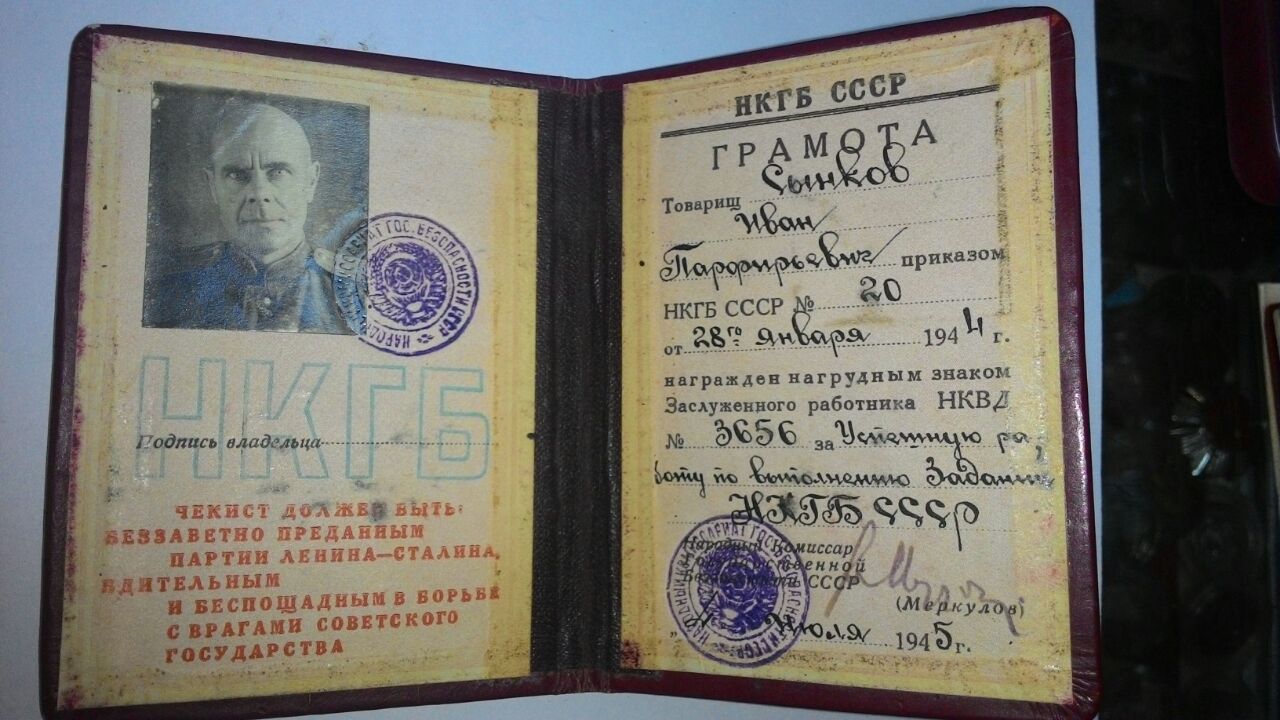 НАРОДНЫЙ КОМИССАРИАТ ГОС. БЕЗОПАСНОСТИ СССР
НКГБ
Подпись владельца
ЧЕКИСТ ДОЛЖЕН БЫТЬ:
БЕЗЗАВЕТНО ПРЕДАННЫМ
ПАРТИИ ЛЕНИНА—СТАЛИНА,
БДИТЕЛЬНЫМ
И БЕСПОЩАДНЫМ В БОРЬБЕ
С ВРАГАМИ СОВЕТСКОГО
ГОСУДАРСТВА
НКГБ СССР
ГРАМОТА
Товарищ Сынков
Иван
Парфирьевич приказом
НКГБ СССР № 20
от 28го января 1944 г.
награжден нагрудным знаком
Заслуженного работника НКВД
№ 3656 за Успешную ра
боту по выполнению Задании
НКГБ СССР
Народный Комиссар
Государственной
Безопасности СССР
(Меркулов)
НАРОДНЫЙ КОМИССАРИАТ ГОС. БЕЗОПАСНОСТИ СССР
Июля 1945 г.